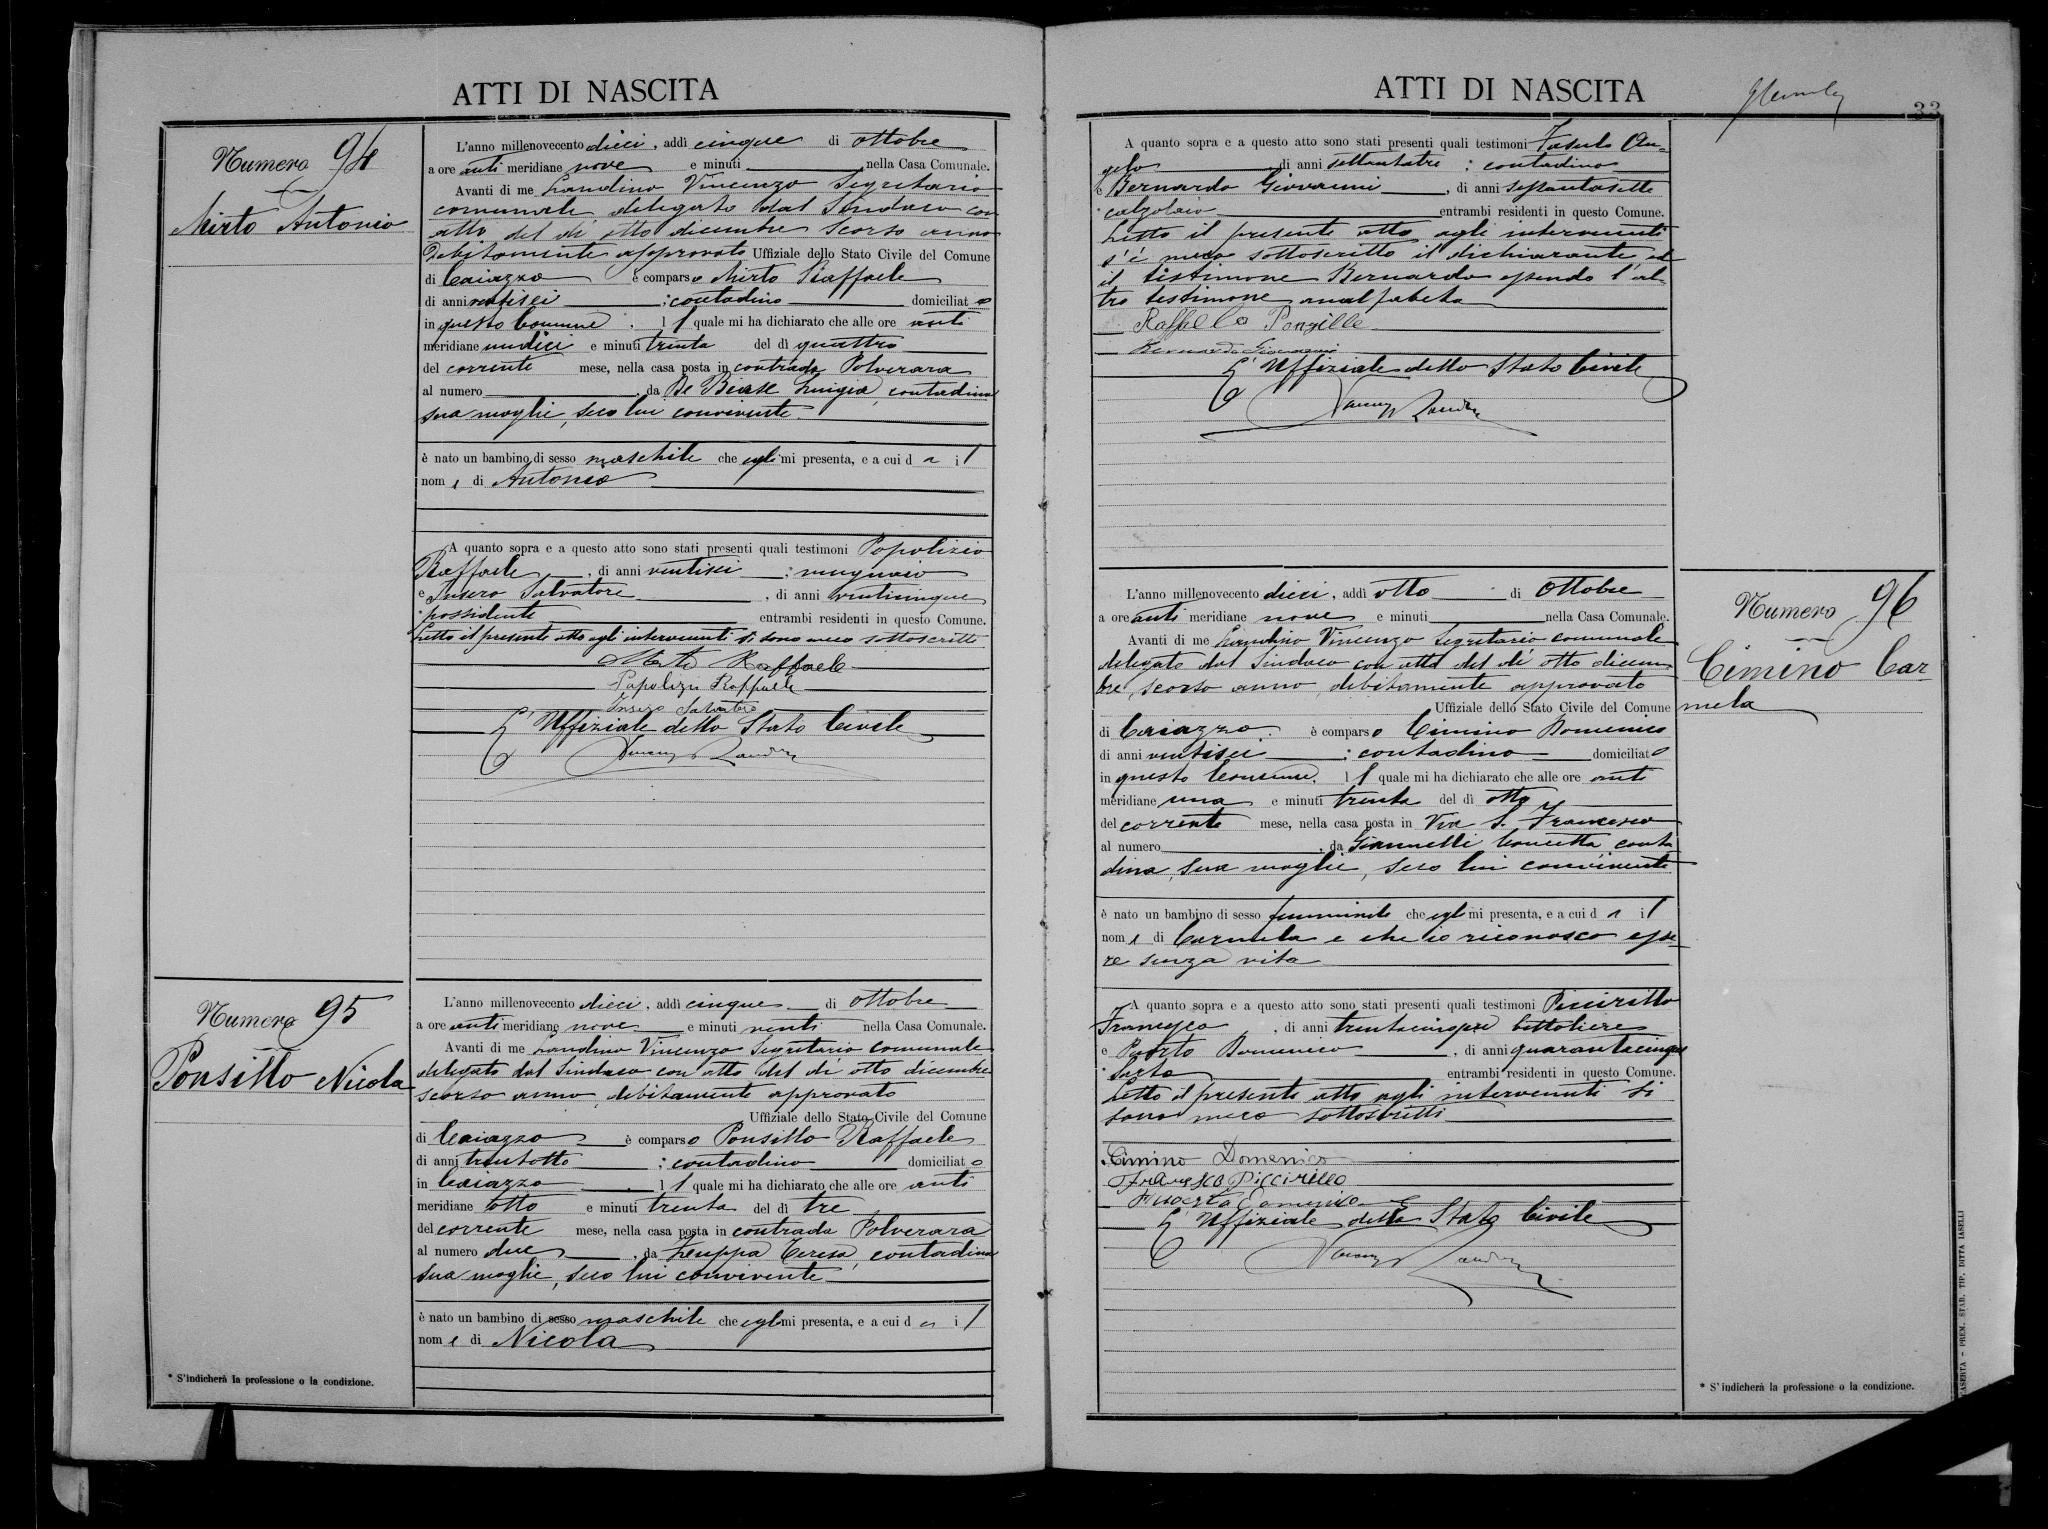 ATTI DI NASCITA
Numero 94
Mirto Antonio
L'anno millenovecento dieci, addì cinque di ottobre
a ore anti meridiane nove e minuti nella Casa Comunale.
Avanti di me Landino Vincenzo Segretario
comunale delegato dal Sindaco con
atto del dì otto dicembre scorso anno
debitamente approvato Uffiziale dello Stato Civile del Comune
di Caiazzo è comparso Mirto Raffaele
di anni ventisei ; contadino domiciliato
in questo Comune. Il quale mi ha dichiarato che alle ore anti
meridiane undici e minuti trenta del dì quattro
del corrente mese, nella casa posta in contrada Polverara
al numero , da De Biase Luigia, contadina
sua moglie, seco lui convivente
è nato un bambino di sesso maschile che egli mi presenta, e a cui dà il
nome di Antonio
A quanto sopra e a questo atto sono stati presenti quali testimoni Popolizio
Raffaele, di anni ventisei ; mugnaio
e Insero Salvatore, di anni venticinque
possidente entrambi residenti in questo Comune.
Letto il presente atto agli intervenuti si sono meco sottoscritti
Mirto Raffaele
Papolizio Raffaele
Insero Salvatore
L'Uffiziale dello Stato Civile
Numero 95
Ponsillo Nicola
L'anno millenovecento dieci, addì cinque di ottobre
a ore anti meridiane nove e minuti venti nella Casa Comunale.
Avanti di me Landino Vincenzo Segretario comunale
delegato dal Sindaco con atto del dì otto dicembre
scorso anno, debitamente approvato
Uffiziale dello Stato Civile del Comune
di Caiazzo è comparso Ponsillo Raffaele
di anni trentotto ; contadino domiciliato
in Caiazzo. Il quale mi ha dichiarato che alle ore anti
meridiane otto e minuti trenta del dì tre
del corrente mese, nella casa posta in contrada Polverara
al numero due, da Zeuppa Teresa, contadina
sua moglie, seco lui convivente
è nato un bambino di sesso maschile che egli mi presenta, e a cui dà il
nome di Nicola
* S'indicherà la professione o la condizione.
ATTI DI NASCITA
33
A quanto sopra e a questo atto sono stati presenti quali testimoni Fasulo An-
gelo di anni settantatre ; contadino
e Bernardo Giovanni, di anni sessantasette
calzolaio entrambi residenti in questo Comune.
Letto il presente atto agli intervenuti
s'è meco sottoscritto il dichiarante ed
il testimone Bernardo essendo l'al-
tro testimone analfabeta
Raffaello Ponzillo
Bernardo Giovanni
L'Uffiziale dello Stato Civile
Numero 96
Cimino Car
mela
L'anno millenovecento dieci, addì otto di ottobre
a ore anti meridiane nove e minuti nella Casa Comunale.
Avanti di me Landino Vincenzo Segretario comunale
delegato dal Sindaco con atto del dì otto dicem-
bre, scorso anno, debitamente approvato
Uffiziale dello Stato Civile del Comune
di Caiazzo è comparso Cimino Domenico
di anni ventisei ; contadino domiciliato
in questo Comune. Il quale mi ha dichiarato che alle ore anti
meridiane una e minuti trenta del dì otto
del corrente mese, nella casa posta in Via S. Francesco
al numero , da Giannelli Concetta conta
dina, sua moglie, seco lui convivente
è nato un bambino di sesso femminile che egli mi presenta, e a cui dà il
nome di Carmela e che io riconosco esse-
re senza vita
A quanto sopra e a questo atto sono stati presenti quali testimoni Piccirillo
Francesco, di anni trentacinque bettoliere
e Domenico, di anni quarantacinque
Sarto entrambi residenti in questo Comune.
Letto il presente atto agli intervenuti si
sono meco sottoscritti
Cimino Domenico
Francesco Piccirillo
L'Uffiziale dello Stato Civile
* S'indicherà la professione o la condizione.
CASERTA - PREM. STAB. TIP. DITTA IASELLI